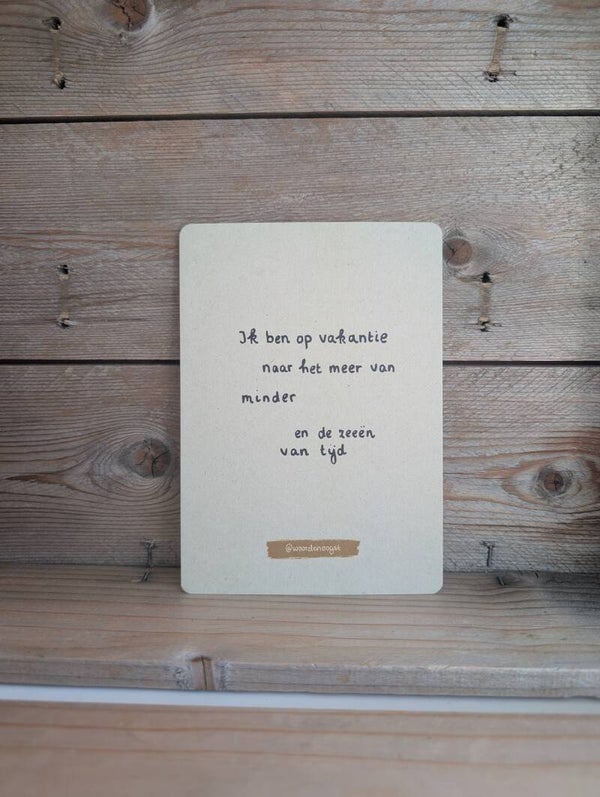 Ik ben op vakantie
naar het meer van
minder
en de zeeën
van tijd
@woordenoogst